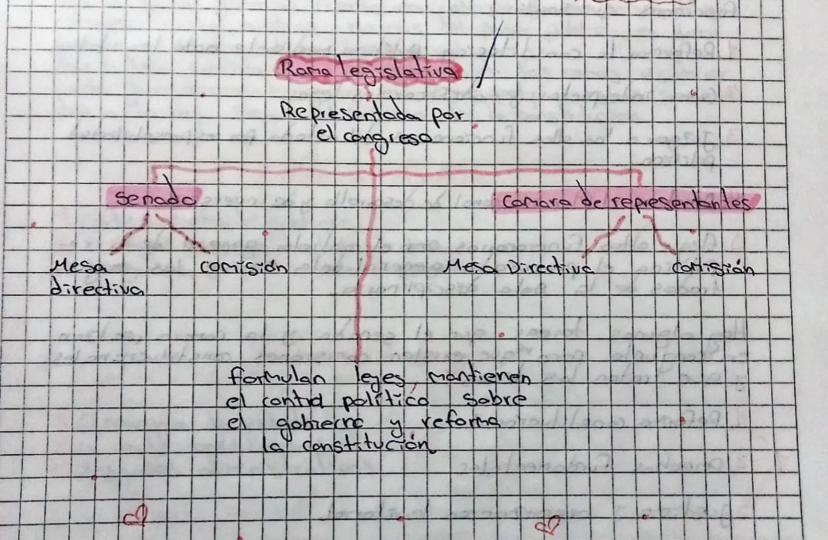 Rama legislativa
Representada por
el congreso
senado
camara de representantes
Mesa
directiva
comisión
Mesa Directiva
comisión
formulan leyes, mantienen
el control político sobre
el gobierno y reforma
la constitución